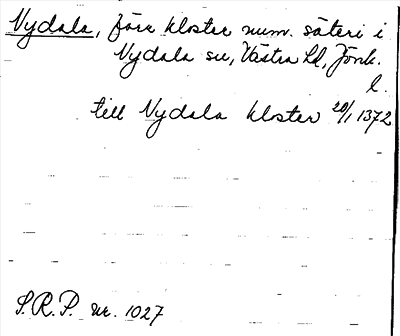 Nydala, före kloster num. säteri i
Nydala sn, Västra hd, Jönk.
l.
till Nydala kloster 20/1 1372
S.R.P. nr. 1027